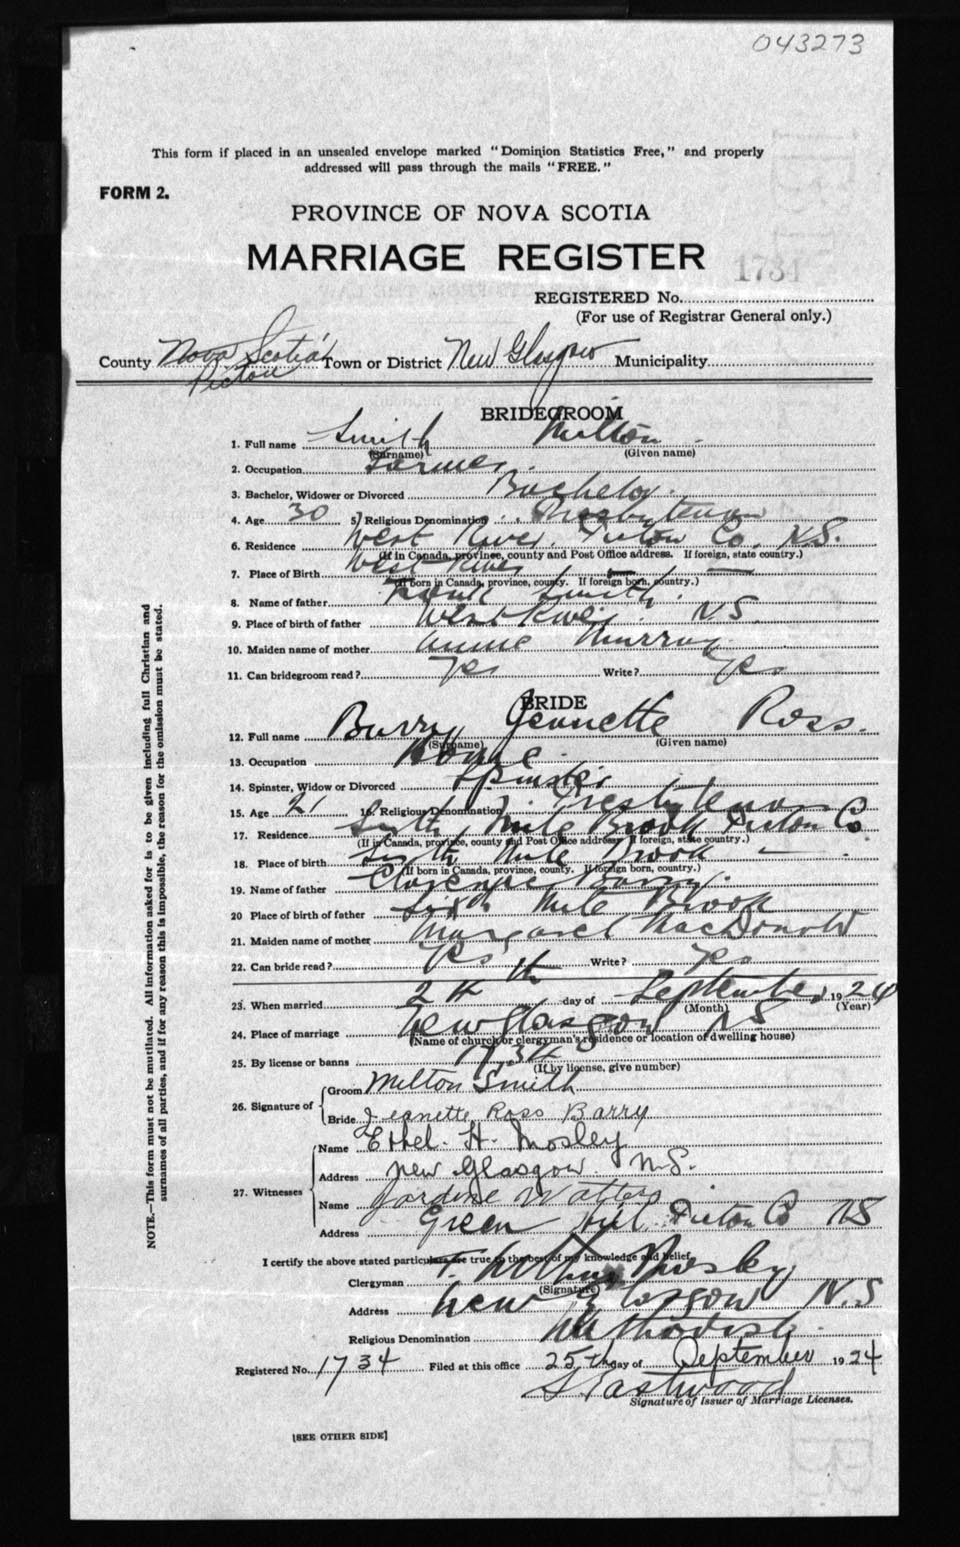 043273
This form if placed in an unsealed envelope marked "Dominion Statistics Free," and properly
addressed will pass through the mails "FREE."
FORM 2.
PROVINCE OF NOVA SCOTIA
MARRIAGE REGISTER 1734
REGISTERED No.
(For use of Registrar General only.)
County Nova Scotia Town or District New Glasgow Municipality
Pictou
BRIDEGROOM
1. Full name Smith Milton
(Surname) (Given name)
2. Occupation Farmer
3. Bachelor, Widower or Divorced Bachelor
4. Age 30 5. Religious Denomination Presbyterian
6. Residence West River Pictou Co. N.S.
(If in Canada, province, county and Post Office address. If foreign, state country.)
7. Place of Birth West River
(If born in Canada, province, county. If foreign born, country.)
8. Name of father Frank Smith
9. Place of birth of father West River N S
10. Maiden name of mother Annie Murray
11. Can bridegroom read? Yes Write? Yes
BRIDE
12. Full name Barry Jennette Ross
(Surname) (Given name)
13. Occupation Home
14. Spinster, Widow or Divorced Spinster
15. Age 21 16. Religious Denomination Presbyterian
17. Residence Sixth Mile Brook Pictou Co
(If in Canada, province, county and Post Office address. If foreign, state country.)
18. Place of birth Sixth Mile Brook
(If born in Canada, province, county. If foreign born, country.)
19. Name of father Clarence Barry
20 Place of birth of father Sixth Mile Brook
21. Maiden name of mother Margaret MacDonald
22. Can bride read? Yes Write? Yes
23. When married 24th day of September 1924
(Month) (Year)
24. Place of marriage New Glasgow N S
(Name of church or clergyman's residence or location of dwelling house)
25. By license or banns 1734
(If by license, give number)
26. Signature of Groom Milton Smith
Bride Jeanette Ross Barry
27. Witnesses Name Ethel. H. Mosley
Address New Glasgow N.S.
Name Jardine Watters
Address Green Hill Pictou Co NS
I certify the above stated particulars are true to the best of my knowledge and belief.
Clergyman Mosley
(Signature)
Address New Glasgow N.S
Religious Denomination Methodist
Registered No. 1734 Filed at this office 25th day of September 1924
S Eastwood
Signature of Issuer of Marriage Licenses.
[SEE OTHER SIDE]
NOTE.—This form must not be mutilated. All information asked for is to be given including full Christian and
surnames of all parties, and if for any reason this is impossible, the reason for the omission must be stated.